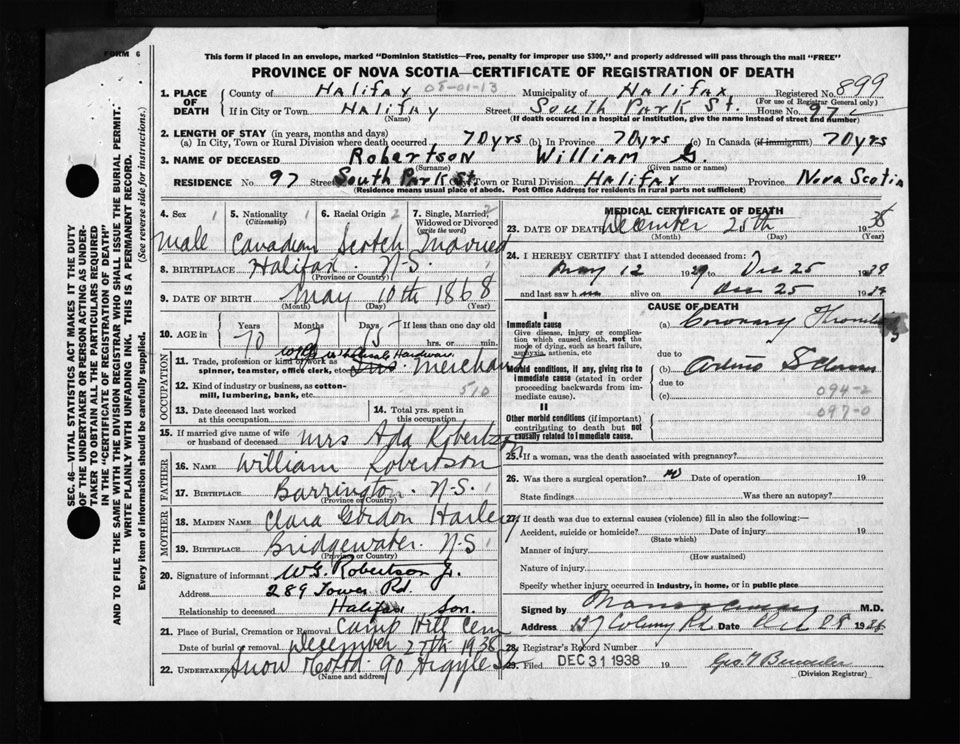 FORM 6
This form if placed in an envelope, marked "Dominion Statistics—Free, penalty for improper use $300," and properly addressed will pass through the mail "FREE"
PROVINCE OF NOVA SCOTIA—CERTIFICATE OF REGISTRATION OF DEATH
1. PLACE OF DEATH County of Halifax 05-01-13 Municipality of Halifax Registered No. 899
(For use of Registrar General only)
If in City or Town Halifax Street South Park St. House No. 97
(Name) (If death occurred in a hospital or institution, give the name instead of street and number)
2. LENGTH OF STAY (in years, months and days)
(a) In City, Town or Rural Division where death occurred 70 yrs (b) In Province 70 yrs (c) In Canada (if immigrant) 70 yrs
3. NAME OF DECEASED Robertson William G.
(Surname) (Given name or names)
RESIDENCE No. 97 Street South Park St. City, Town or Rural Division Halifax Province Nova Scotia
(Residence means usual place of abode. Post Office Address for residents in rural parts not sufficient)
4. Sex 1 5. Nationality 1 (Citizenship) 6. Racial Origin 2 7. Single, Married, Widowed or Divorced (write the word) 2
Male Canadian Scotch Married
8. BIRTHPLACE Halifax N.S. 1
(Province or Country)
9. DATE OF BIRTH May 10th 1868
(Month) (Day) (Year)
10. AGE in Years Months Days If less than one day old
70 7 15 hrs. or min.
OCCUPATION
11. Trade, profession or kind of work as spinner, teamster, office clerk, etc. Wholesale Hardware Merchant
12. Kind of industry or business, as cotton-mill, lumbering, bank, etc. 510
13. Date deceased last worked at this occupation
14. Total yrs. spent in this occupation
15. If married give name of wife or husband of deceased Mrs Ada Robertson
FATHER
16. NAME William Robertson
17. BIRTHPLACE Barrington. N.S. 1
(Province or Country)
MOTHER
18. MAIDEN NAME Clara Gordon Harley
19. BIRTHPLACE Bridgewater. N.S 1
(Province or Country)
20. Signature of informant W.G. Robertson Jr.
Address 289 Tower Rd.
Halifax
Relationship to deceased Son.
21. Place of Burial, Cremation or Removal Camp Hill Cem
Date of burial or removal December 27th 1938
22. UNDERTAKER Snow 90 Argyle St
(Name and address)
MEDICAL CERTIFICATE OF DEATH
23. DATE OF DEATH December 25th 1938
(Month) (Day) (Year)
24. I HEREBY CERTIFY that I attended deceased from:
May 12 19 to Dec 25 19
and last saw h alive on Dec 25 19
CAUSE OF DEATH
I
Immediate cause
Give disease, injury or complication which caused death, not the mode of dying, such as heart failure, asphyxia, asthenia, etc
(a) Coronary
due to
Morbid conditions, if any, giving rise to immediate cause (stated in order proceeding backwards from immediate cause).
(b)
due to
(c) 094-2
097-0
II
Other morbid conditions (if important) contributing to death but not causally related to immediate cause.
25. If a woman, was the death associated with pregnancy?
26. Was there a surgical operation? no Date of operation 19
State findings Was there an autopsy?
27. If death was due to external causes (violence) fill in also the following:—
Accident, suicide or homicide? Date of injury 19
(State which)
Manner of injury
(How sustained)
Nature of injury
Specify whether injury occurred in industry, in home, or in public place
Signed by M.D.
Address Coburg Rd Date 28 19
28. Registrar's Record Number
29. Filed DEC 31 1938 19 Geo.
(Division Registrar)
SEC. 46—VITAL STATISTICS ACT MAKES IT THE DUTY
OF THE UNDERTAKER OR PERSON ACTING AS UNDER-
TAKER TO OBTAIN ALL THE PARTICULARS REQUIRED
IN THE "CERTIFICATE OF REGISTRATION OF DEATH"
AND TO FILE THE SAME WITH THE DIVISION REGISTRAR WHO SHALL ISSUE THE BURIAL PERMIT.
WRITE PLAINLY WITH UNFADING INK. THIS IS A PERMANENT RECORD.
Every item of information should be carefully supplied. (See reverse side for instructions.)